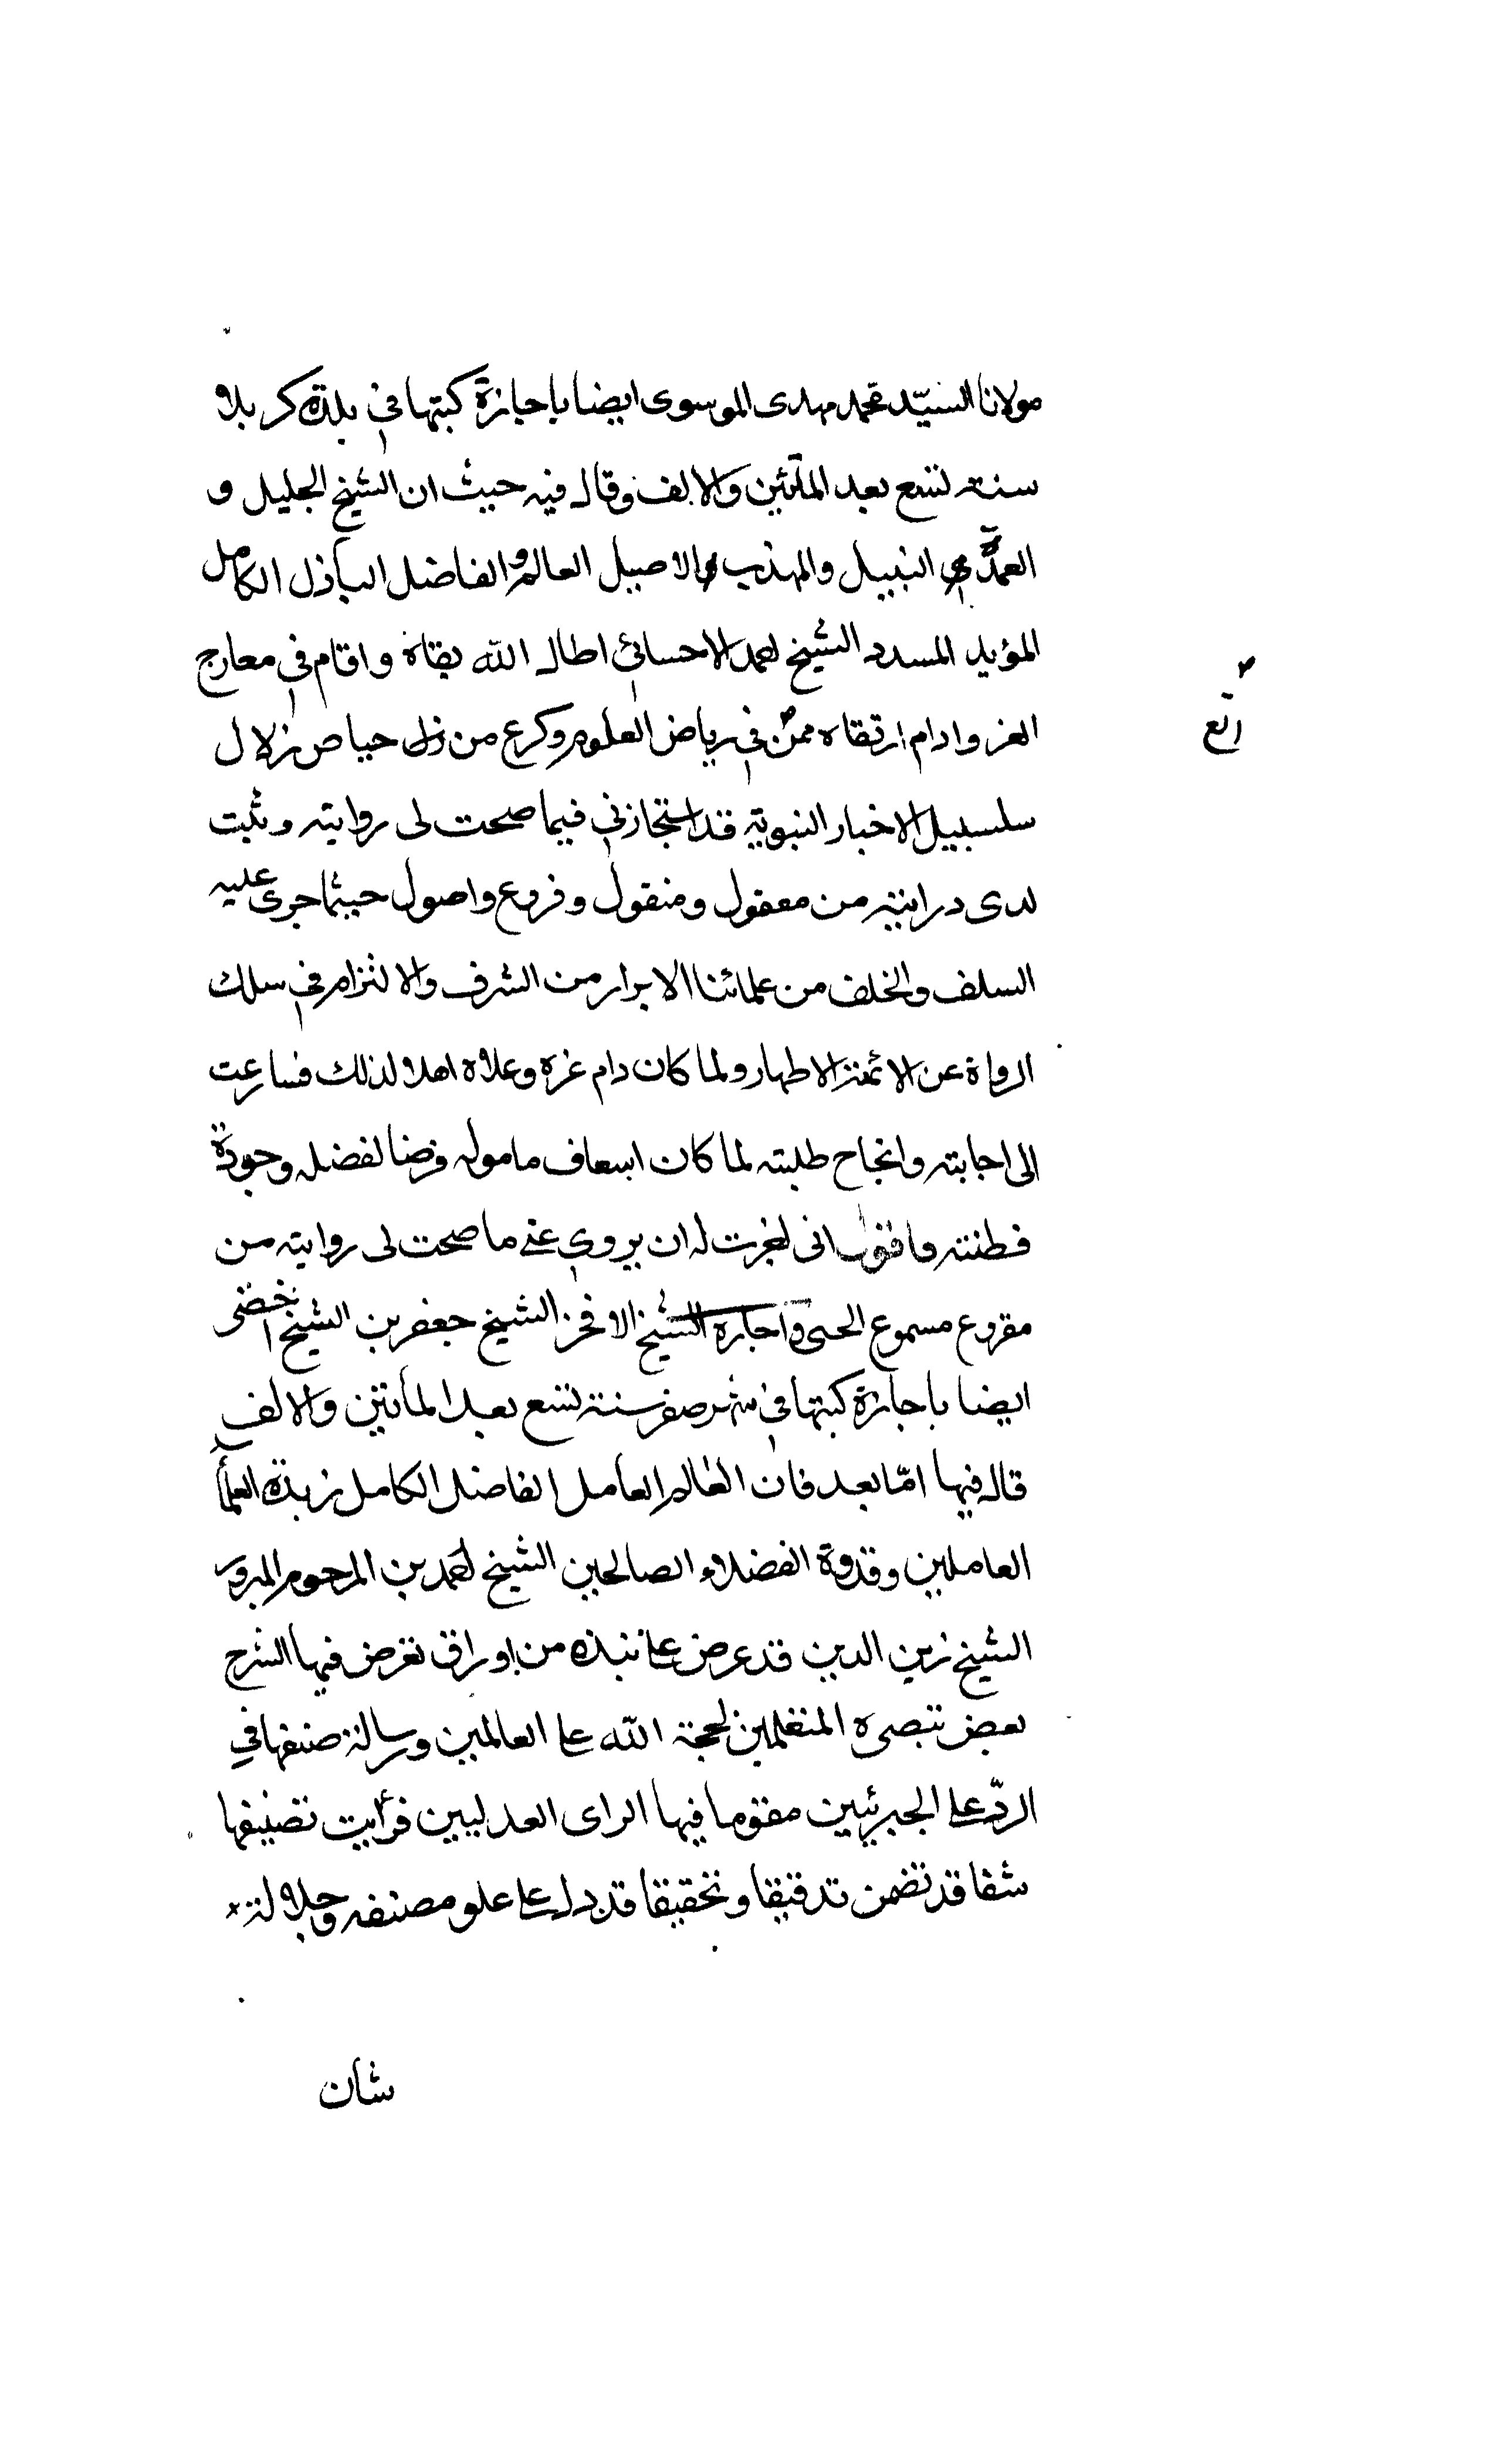 مولانا السيّد محمد مهدى الموسوى ايضا باجازة كتبها فى بلدة كربلا
سنة تسع بعد المأتين والالف وقال فيه حيث ان الشيخ الجليل و
العمدة النبيل والمهذب الاصيل العالم والفاضل الباذل الكامل
المؤيد المسدد الشيخ احمد الاحسائى اطال الله بقاه واقام فى معارج
العز وادام ارتقاه ممن فى رياض العلوم وكرع من حياض زلال
رتع
سلسبيل الاخبار النبوية قد استجازنى فيما صحت لى روايته وثبت
لدى درايته من معقول ومنقول وفروع واصول حيثما جرى عليه
السلف والخلف من علمائنا الابرار من الشرف والالتزام فى سلك
الرواة عن الائمة الاطهار ولما كان دام عزه وعلاه اهلا لذلك فسارعت
الى اجابته وانجاح طلبته لما كان اسعاف ماموله فرضا لفضله وجودة
فطنته فاقول انى اجزت له ان يروى عنى ما صحت لى روايته من
مقروع مسموع واجازه الشيخ الافخر الشيخ جعفر بن الشيخ خضر
ايضا باجازة كتبها فى شهر صفر سنة تسع بعد المأتين والالف
قال فيها امّا بعد فان العالم العامل الفاضل الكامل زبدة العلمأ
العاملين وقدوة الفضلاء الصالحين الشيخ احمد بن المرحوم المبرور
الشيخ زين الدين قد عرض على نبذه من اوراق تعرض فيها الشرح
بعض تبصره المتعلمين لحجة الله على العالمين ورسالة صنفها فى
الردّ على الجبريين مقوما فيها الراى العدليين فرأيت تصنيفها
قد تضمن تدقيقا وتحقيقا قد دل على علو مصنفه وجلالة
شأن